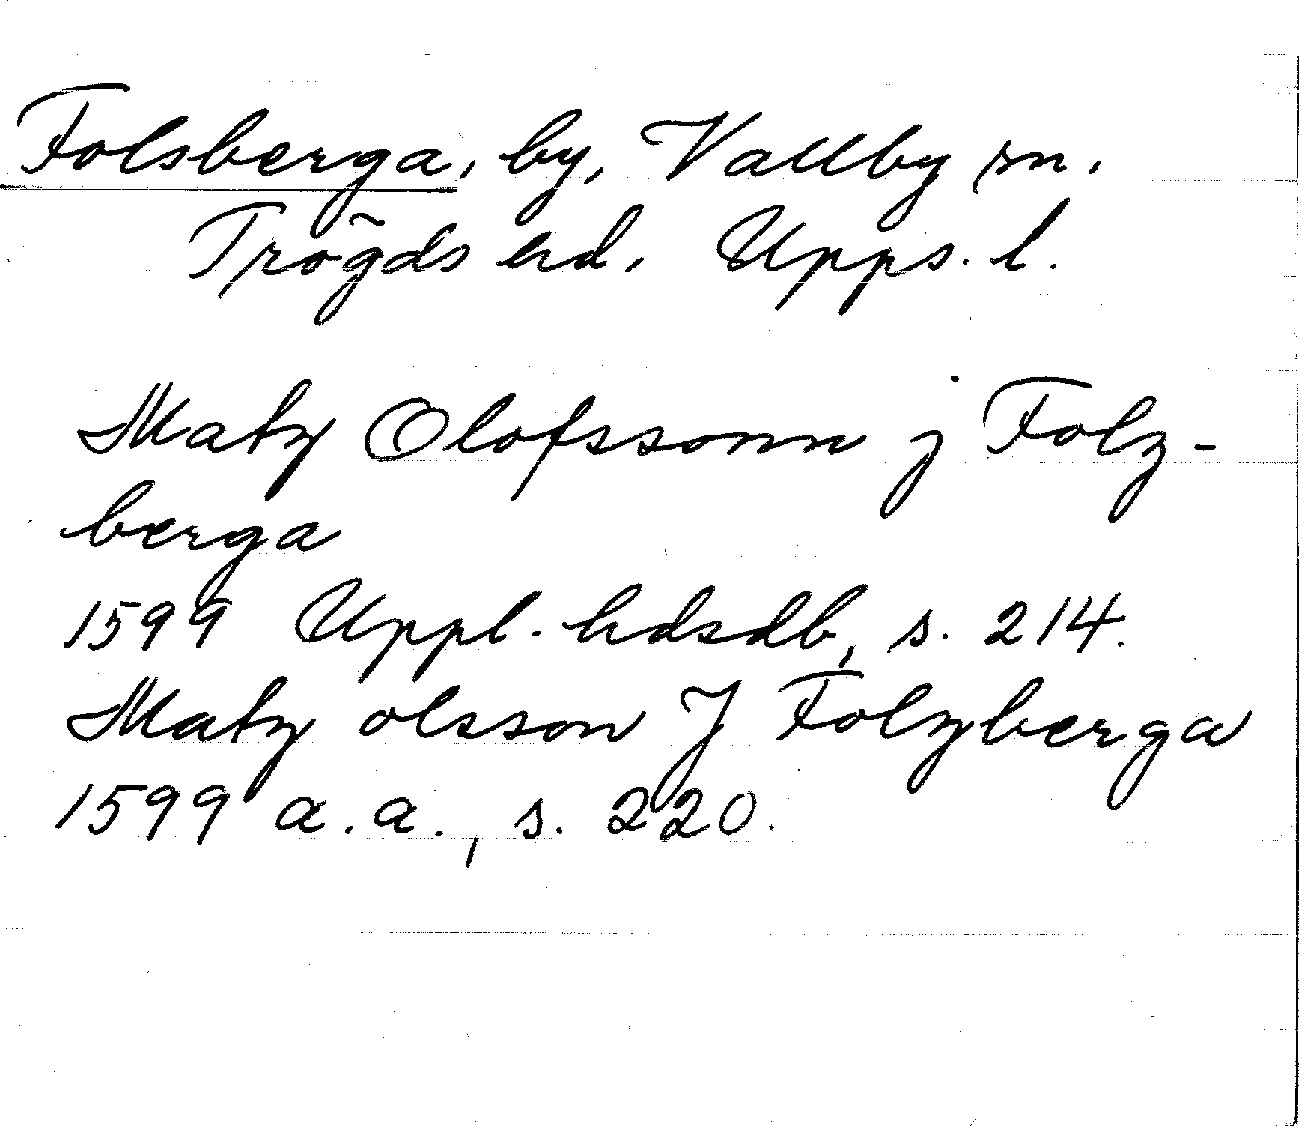 Folsberga, by, Vallby sn.
Trögds hd, Upps. l.
Matz Olofssonn j Folz-
berga
1599 Uppl. hdsdb, s. 214.
Matz olsson J Folzberga
1599 a. a., s. 220.